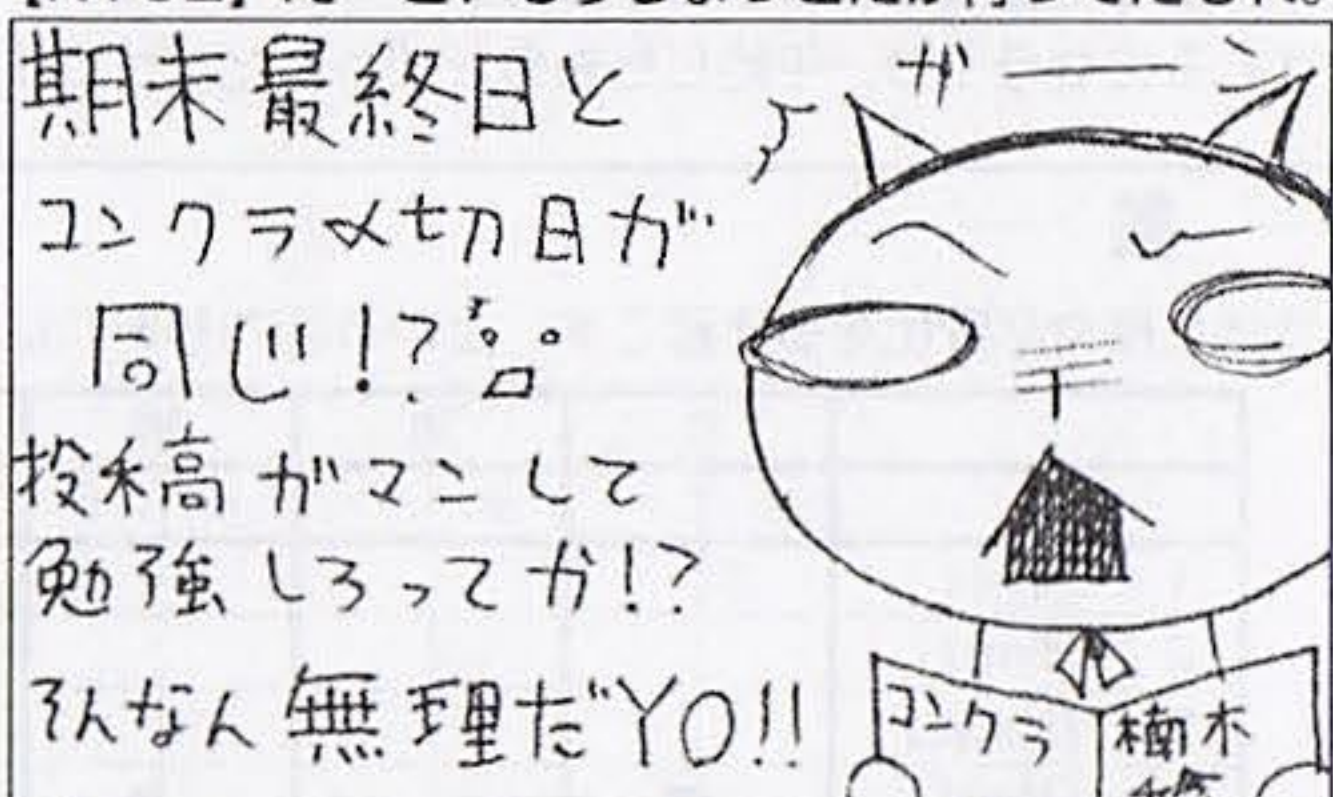 期末最終日と
コンクラ〆切日が
同じ!?
投稿ガマンして
勉強しろってか!?
そんなん無理だYO!!
ガーン
コンクラ
楠木